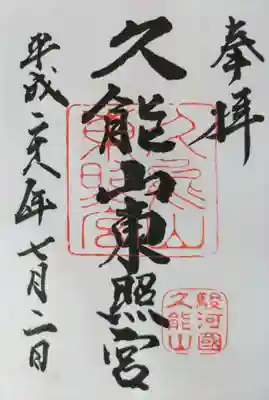 奉拝
久能山東照宮
久能山東照宮
駿河國
久能山
平成二十八年七月二日